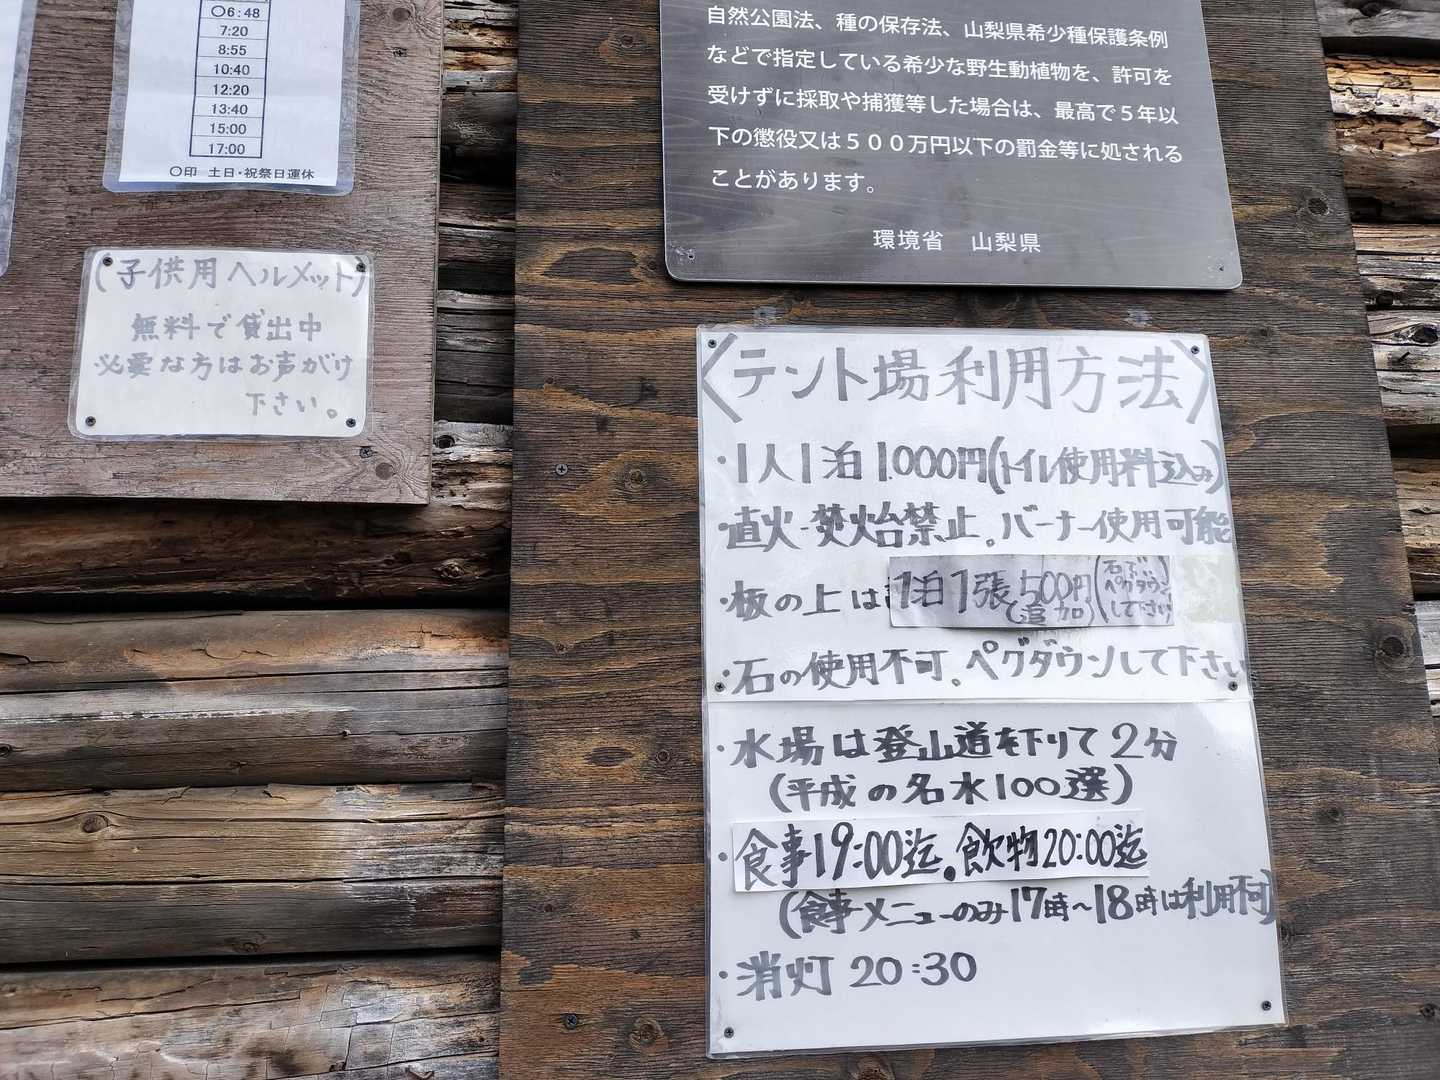 〇6:48
7:20
8:55
10:40
12:20
13:40
15:00
17:00
〇印 土日・祝祭日運休
(子供用ヘルメット)
無料で貸出中
必要な方はお声がけ
下さい。
自然公園法、種の保存法、山梨県希少種保護条例
などで指定している希少な野生動植物を、許可を
受けずに採取や捕獲等した場合は、最高で5年以
下の懲役又は500万円以下の罰金等に処される
ことがあります。
環境省 山梨県
〈テント場利用方法〉
・1人1泊1,000円(トイレ使用料込み)
・直火・焚火台禁止。バーナー使用可能
・板の上は1泊1張500円(追加)(石ではペグダウンして下さい)
・石の使用不可。ペグダウンして下さい
・水場は登山道を下りて2分
(平成の名水100選)
・食事19:00迄。飲物20:00迄
(食事メニューのみ17時~18時は利用不可)
・消灯 20:30